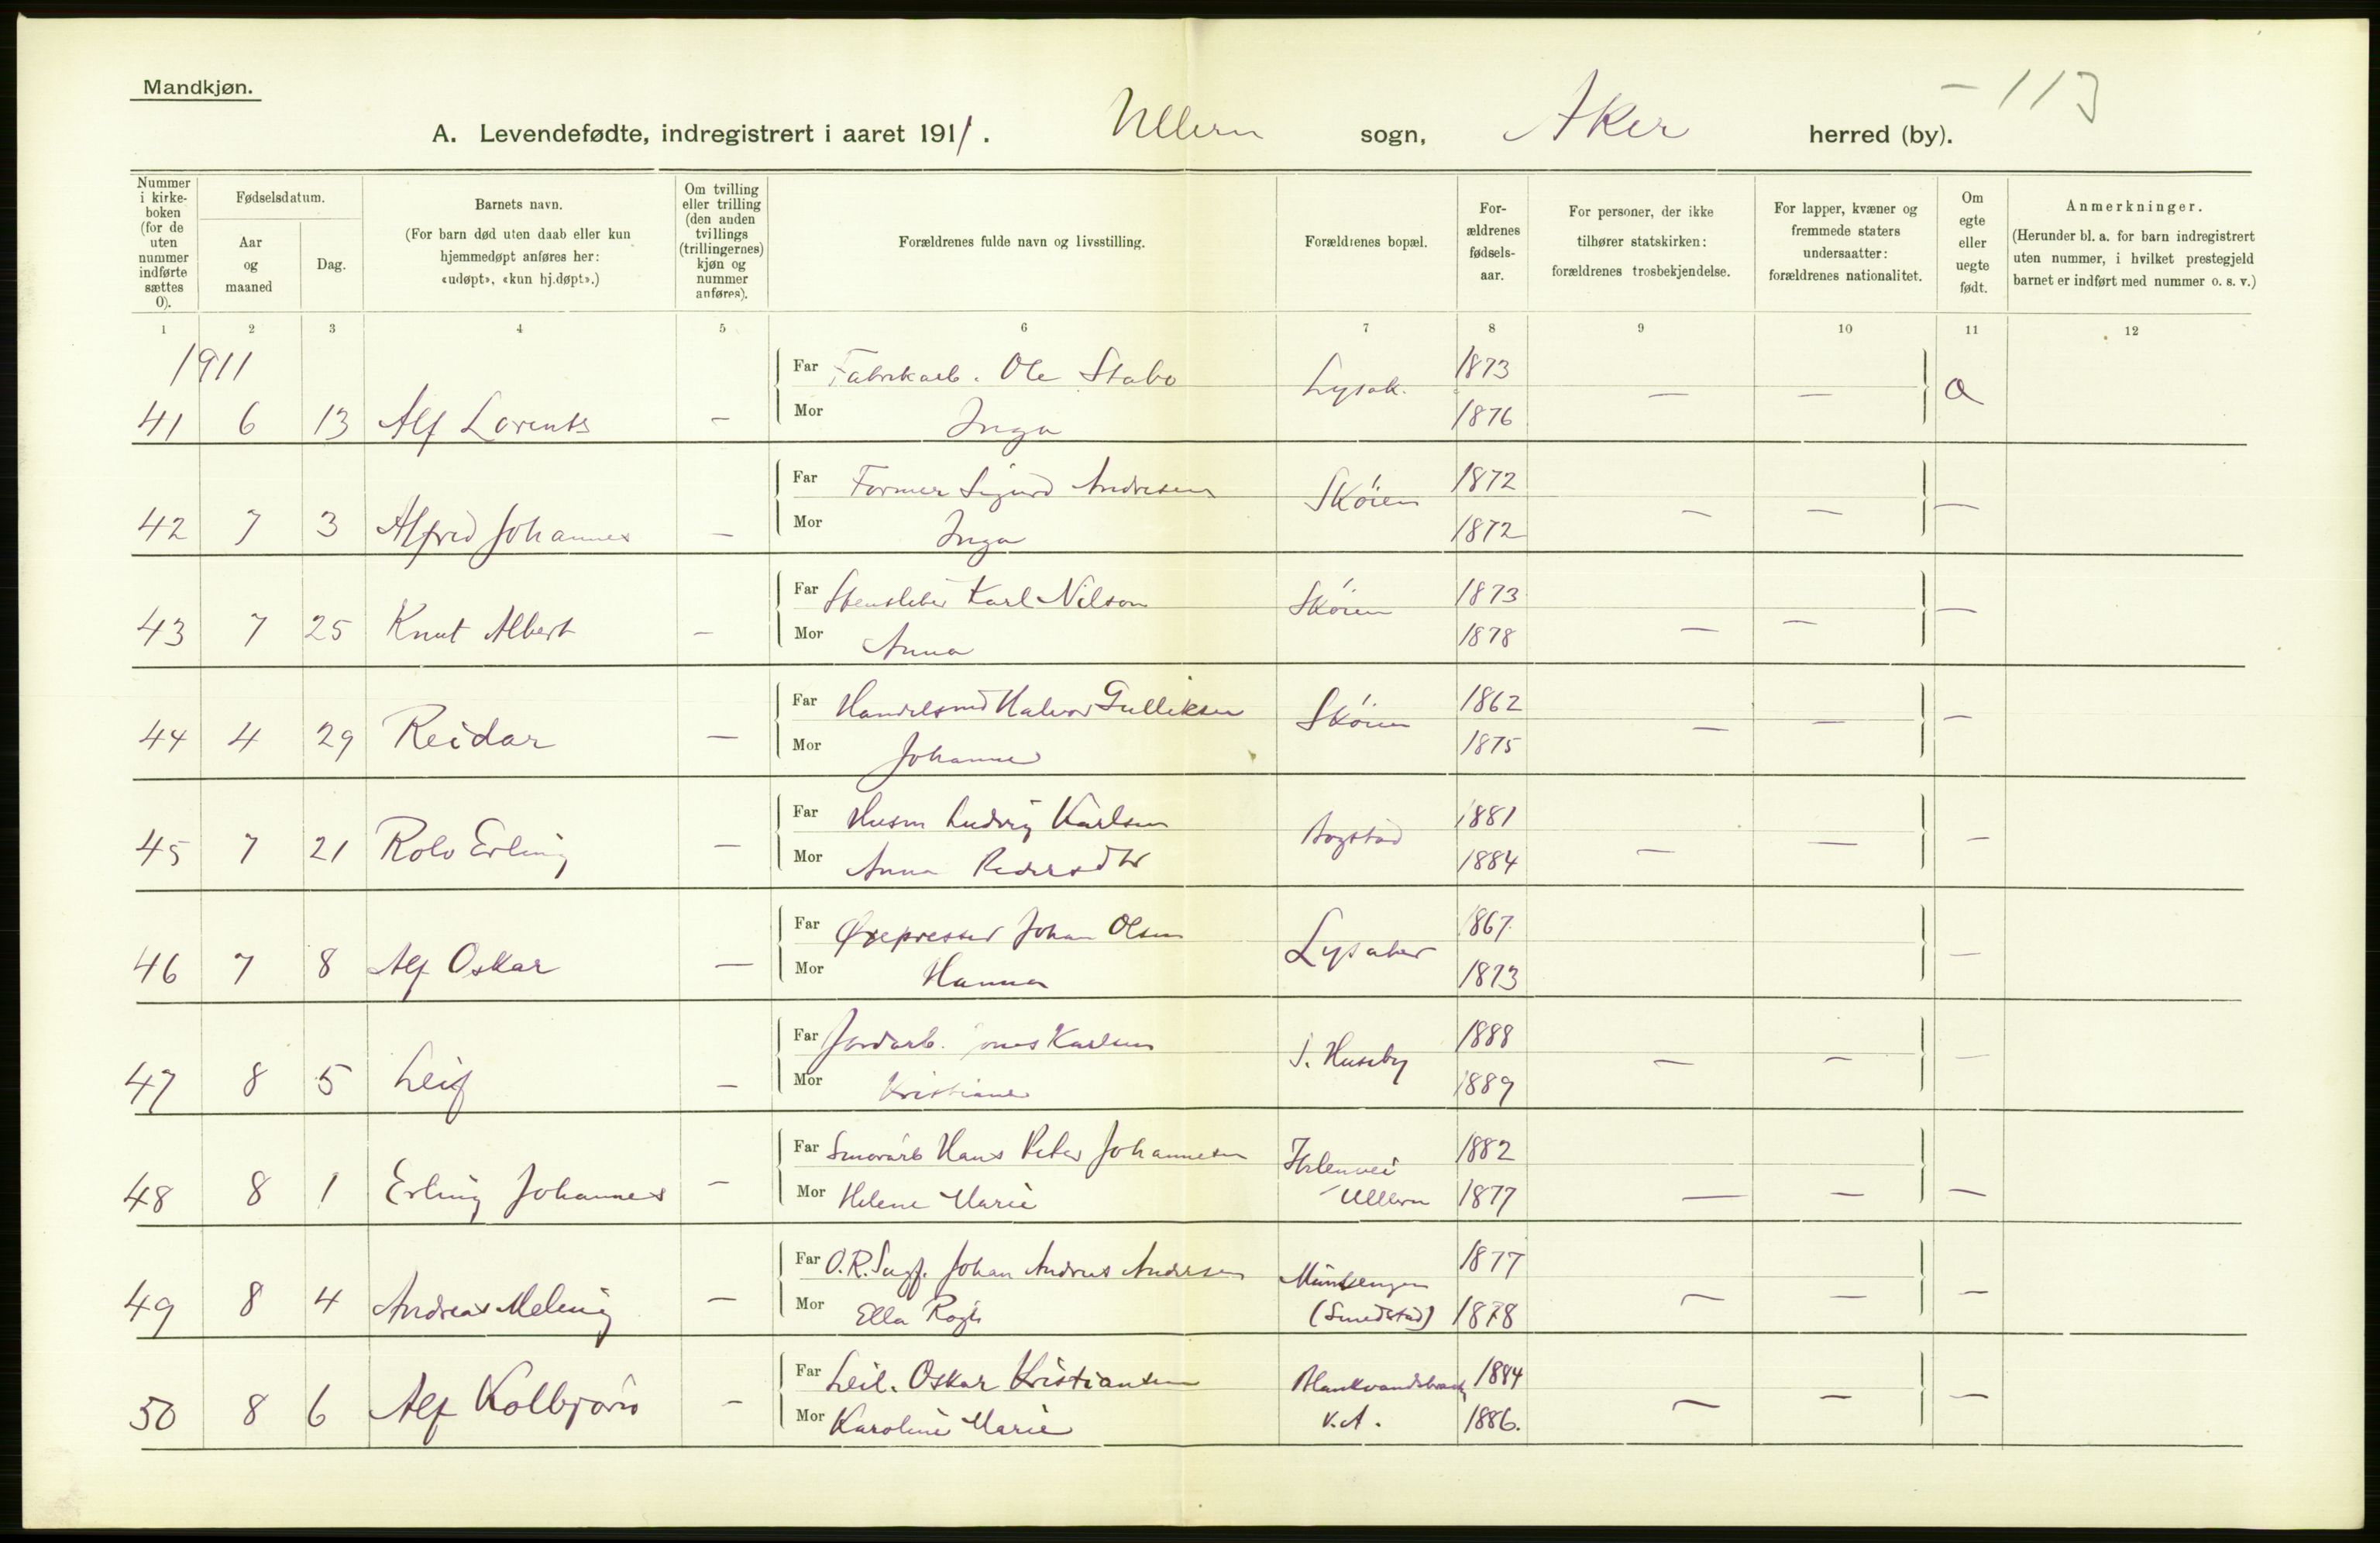 Mandkjøn.
- 113
A. Levendefødte, indregistrert i aaret 1911. Ullern sogn, Aker herred (by).
Nummer i kirke- boken (for de uten nummer indførte sættes 0).
Fødselsdatum.
Aar og maaned
Dag.
Barnets navn.
(For barn død uten daab eller kun hjemmedøpt anføres her: «udøpt», «kun hj.døpt».)
Om tvilling eller trilling (den anden tvillings (trillingernes) kjøn og nummer anføres).
Forældrenes fulde navn og livsstilling.
Forældrenes bopæl.
For- ældrenes fødsels- aar.
For personer, der ikke tilhører statskirken: forældrenes trosbekjendelse.
For lapper, kvæner og fremmede staters undersaatter: forældrenes nationalitet.
Om egte eller uegte født.
Anmerkninger.
(Herunder bl. a. for barn indregistrert uten nummer, i hvilket prestegjeld barnet er indført med nummer o. s. v.)
1 2 3 4 5 6 7 8 9 10 11 12
1911
Far Fabrikarb. Ole Stabo Lysak. 1873
41 6 13 Alf Lorents - Mor Inga 1876 - - a
Far Former Sigurd Andresen Skøien 1872
42 7 3 Alfred Johannes - Mor Inga 1872 - - -
Far Karl Nilson Skøien 1873
43 7 25 Knut Albert - Mor Anna 1878 - - -
Far Handelsmd Halvor Gulliksen Skøien 1862
44 4 29 Reidar - Mor Johanne 1875 - - -
Far Husm Ludvig Karlsen Bogstad 1881
45 7 21 Rolv Erling - Mor Anna Pedersdtr 1884 - - -
Far Johan Olsen Lysaker 1867.
46 7 8 Alf Oskar - Mor Hanna 1873 -
Far Jordarb. Jones Karlsen Huseby 1888
47 8 5 Leif - Mor Kristiane 1889 - - -
Far Hans Peter Johannesen 1882
48 8 1 Erling Johannes - Mor Helene Marie Ullern 1877 - - -
Far O.R. Johan Andreas Andersen 1877
49 8 4 Andreas Meling - Mor Ella (Smedstad) 1878 - - -
Far Leil. Oskar Kristiansen 1884
50 8 6 Alf Kolbjørn - Mor Karoline Marie V.A. 1886. - - -